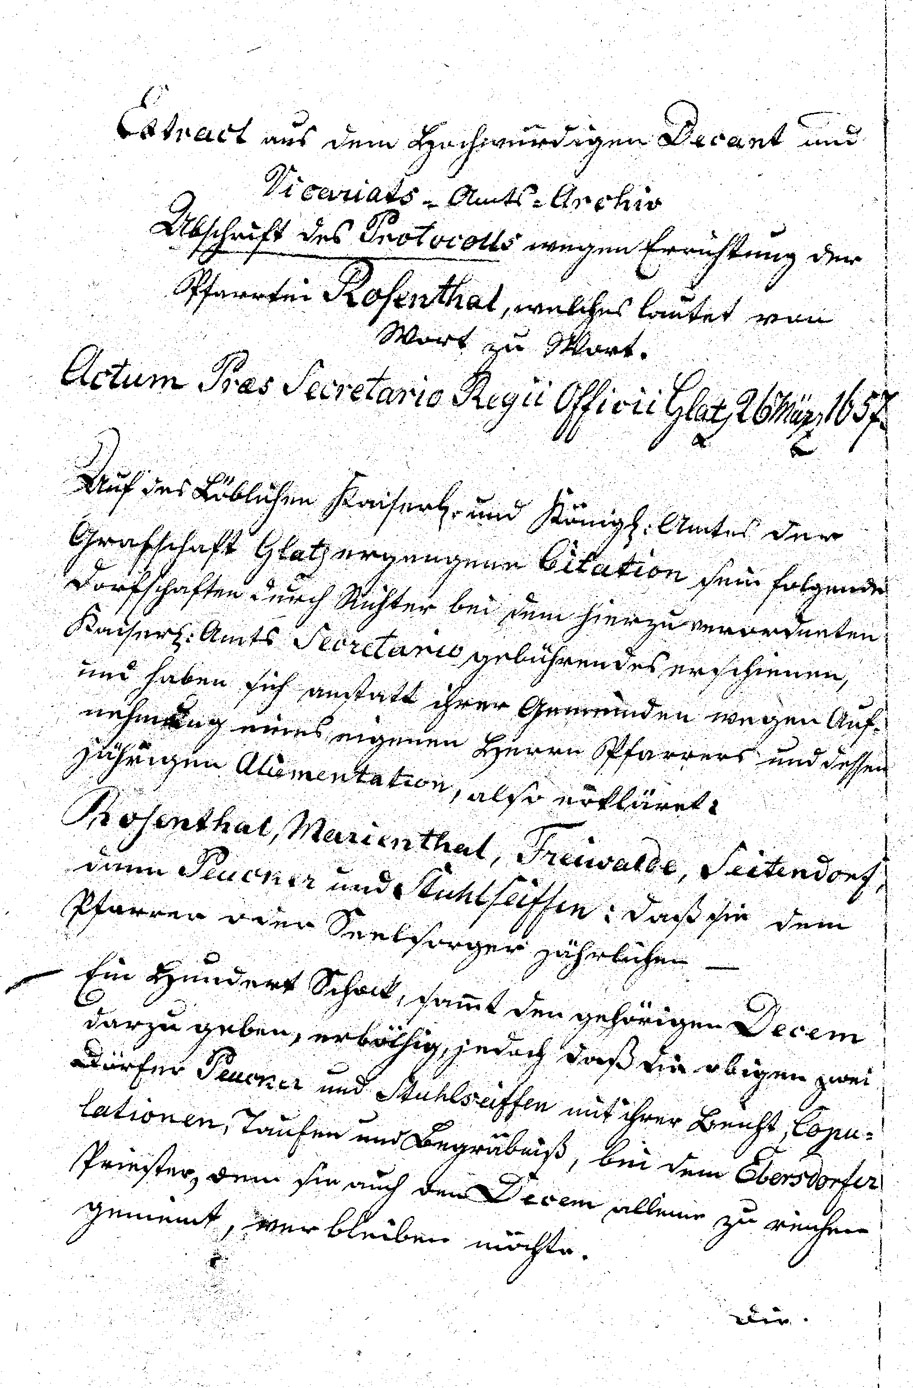 Extract aus dem Hochwürdigen Decant und
Vicariats-Amts-Archiv
Abschrift des Protocolls wegen Errichtung der
Pfarrtei Rosenthal, welches lautet von
Wort zu Wort.
Actum Præs Secretario Regii Officii Glatz 26 März 1657.
Auf des Löblichen Kaiserl. und Königl: Amtes der
Grafschaft Glatz ergangene Citation sein folgende
Dorfschaften durch Richter bei dem hierzu verordneten
Kaiserl: Amts Secretario gebührendes erschienen,
und haben sich anstatt ihrer Gemeinden wegen Auf-
nehmung eines eigenen Herrn Pfarrers und dessen
jährigen Alimentation, also erkläret:
Rosenthal, Marienthal, Freiwalde, Seitendorf,
dann Peucker und Stuhlseiffen: daß sie dem
Pfarrer oder Seelsorger jährlichen —
Ein Hundert Schock, samt den gehörigen Decem
darzu geben, erböthig, jedoch daß die obigen zwei
Dörfer Peucker und Stuhlseiffen mit ihrer Beicht, Copu-
lationen, Taufen und Begräbniß, bei dem Ebersdorfer
Priester, dem sie auch den Decem alleine zu reichen
gemeint, verbleiben möchte.
Die.